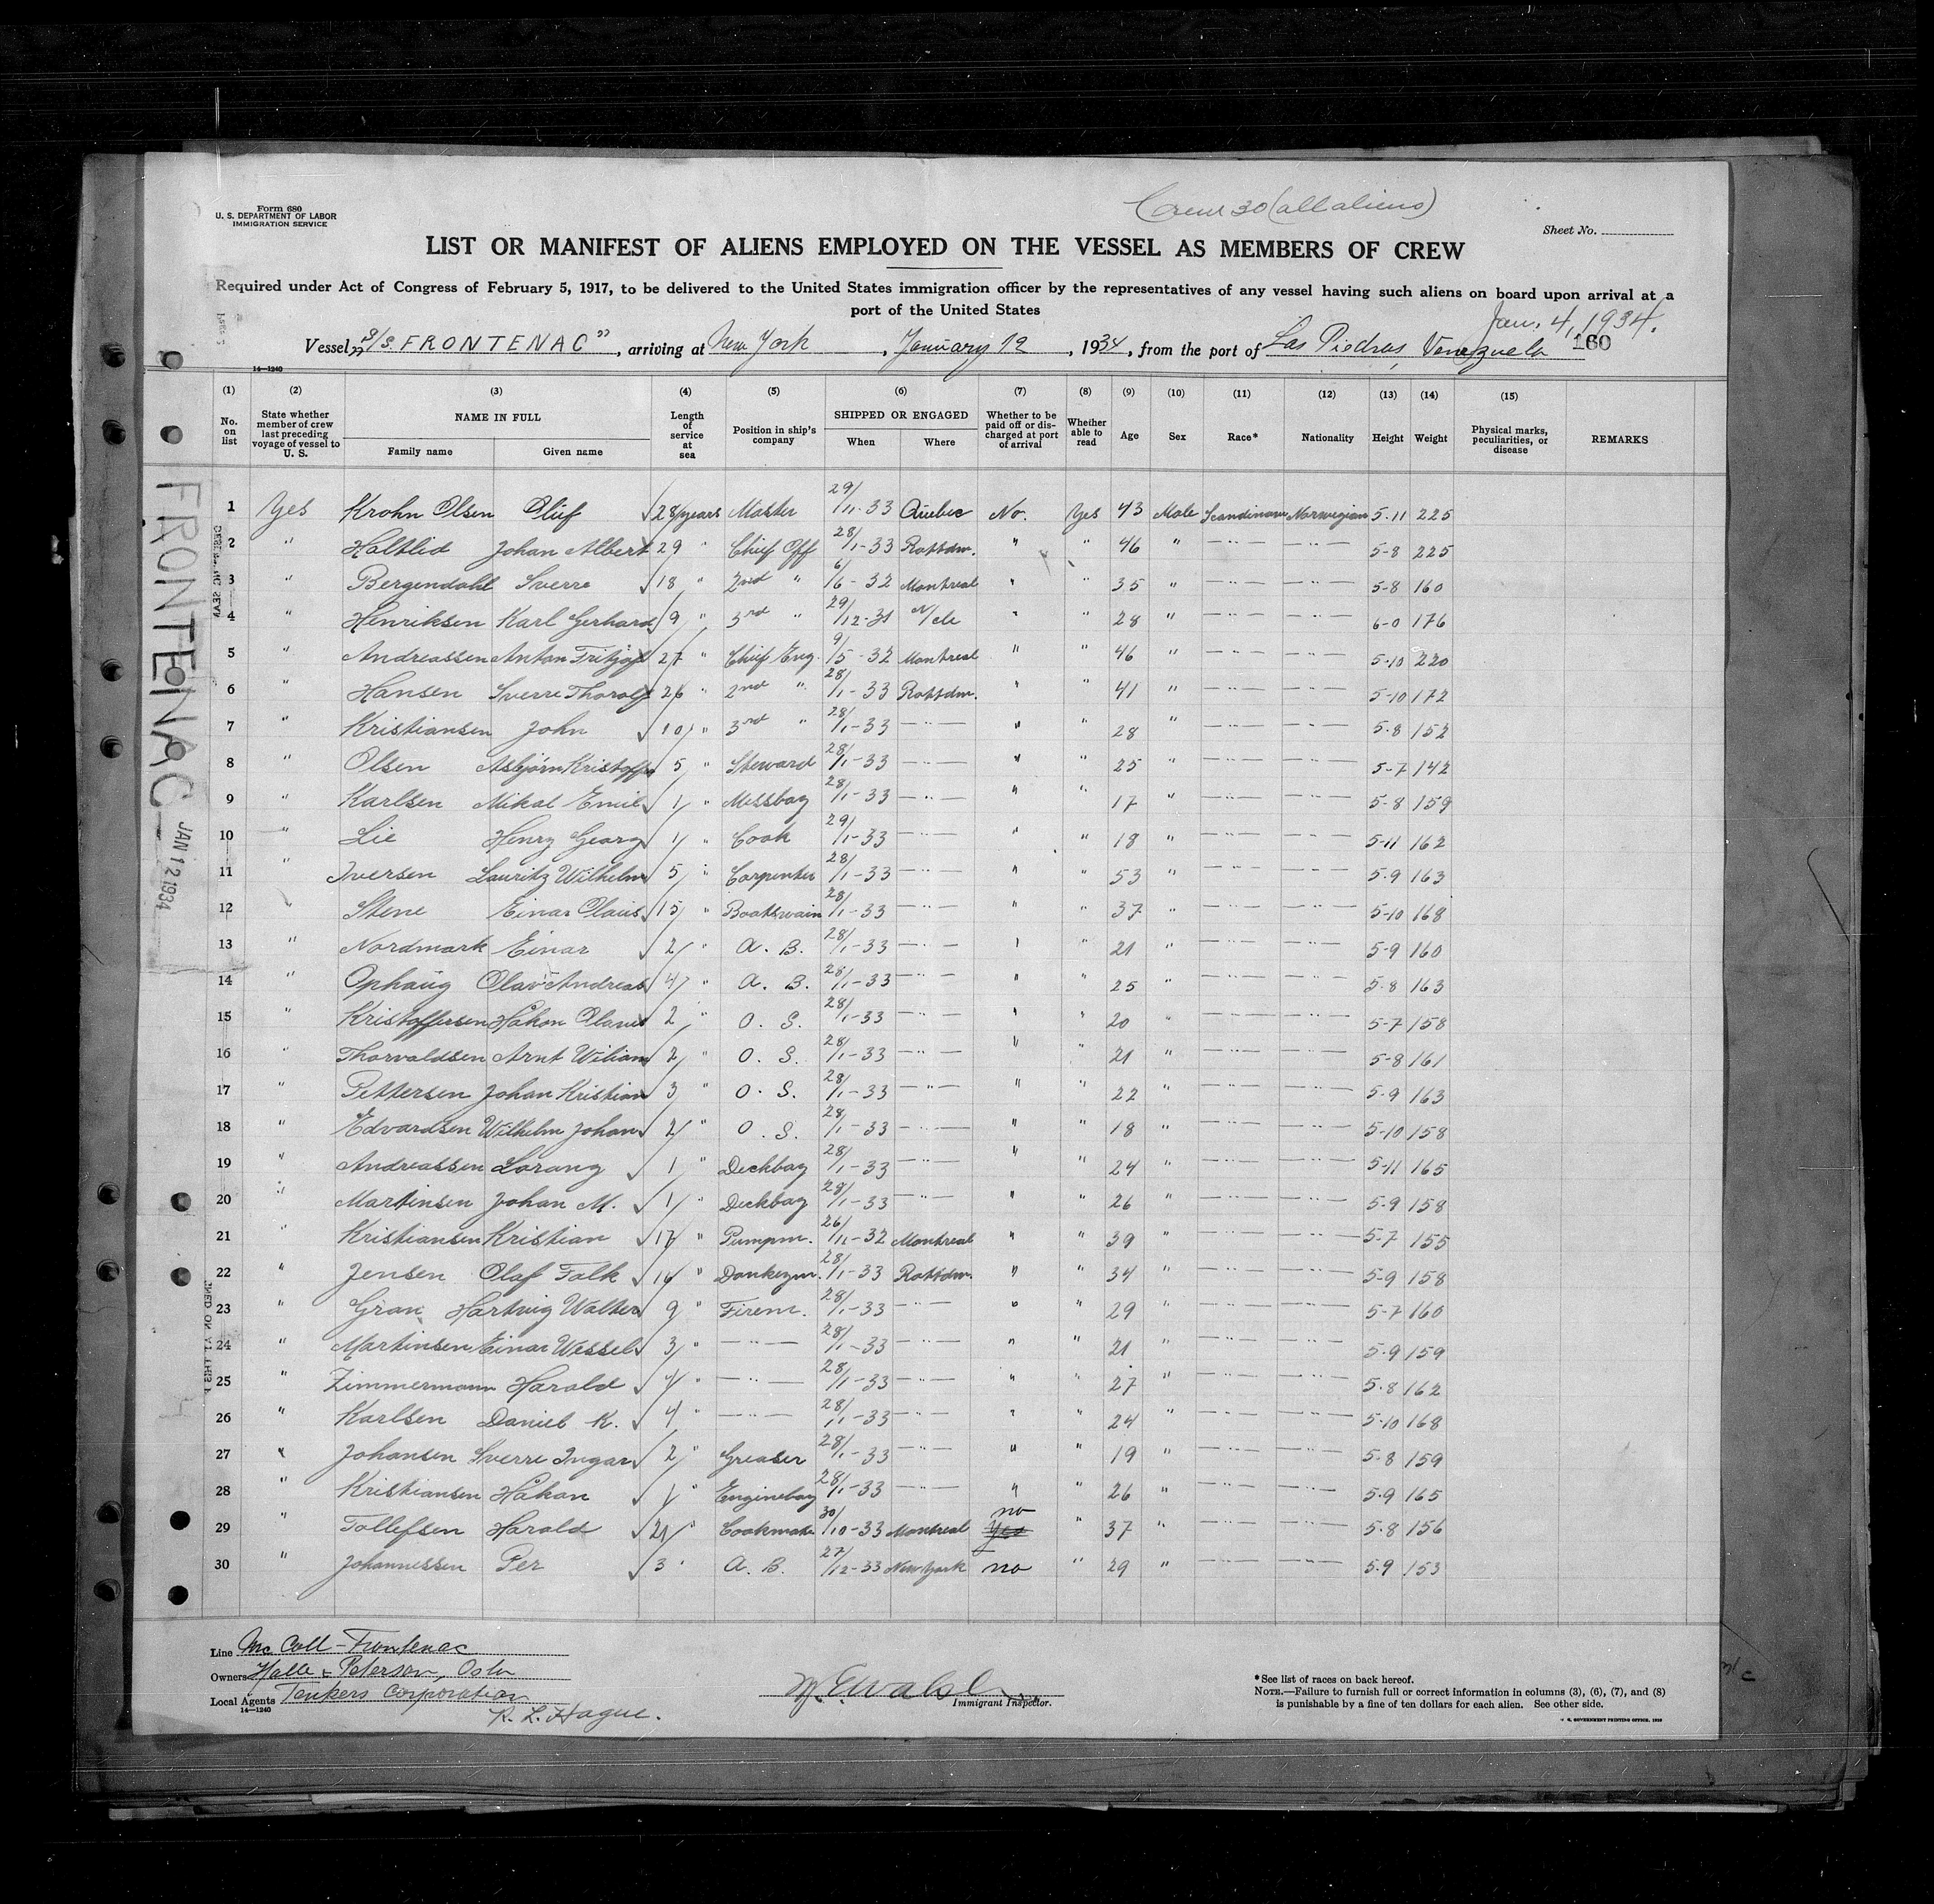 Form 680
U. S. DEPARTMENT OF LABOR
IMMIGRATION SERVICE
Crew 30 (all aliens)
Sheet No.
LIST OR MANIFEST OF ALIENS EMPLOYED ON THE VESSEL AS MEMBERS OF CREW
Required under Act of Congress of February 5, 1917, to be delivered to the United States immigration officer by the representatives of any vessel having such aliens on board upon arrival at a
port of the United States
Jan. 4, 1934.
Vessel "S/S. FRONTENAC", arriving at New York, January 12, 1934, from the port of Las Piedras, Venezuela 160
14—1240
(1) (2) (3) (4) (5) (6) (7) (8) (9) (10) (11) (12) (13) (14) (15)
No. on list State whether member of crew last preceding voyage of vessel to U. S. NAME IN FULL Family name Given name Length of service at sea Position in ship's company SHIPPED OR ENGAGED When Where Whether to be paid off or discharged at port of arrival Whether able to read Age Sex Race* Nationality Height Weight Physical marks, peculiarities, or disease REMARKS
1 Yes Krohn Olsen Oluf √ 28 years Master 29/11-33 Quebec No. Yes 43 Male Scandinav Norwegian 5-11 225
2 " Haltlid Johan Albert 29 " Chief Off 28/1-33 Rottdm. " " 46 " —"— —"— 5-8 225
3 " Bergendahl Sverre √ 18 " 2nd " 6/6-32 Montreal " " 35 " —"— —"— 5-8 160
4 " Henriksen Karl Gerhard 9 " 3rd " 29/12-31 N/cle " " 28 " —"— —"— 6-0 176
5 " Andreassen Anton Fritjof 27 " Chief Eng. 9/5-32 Montreal " " 46 " —"— —"— 5-10 220
6 " Hansen Sverre Thorolf 26 " 2nd " 28/1-33 Rottdm. " " 41 " —"— —"— 5-10 172
7 " Kristiansen John √ 10 " 3rd " 28/1-33 —"— " " 28 " —"— —"— 5-8 152
8 " Olsen Asbjörn Kristoffer 5 " Steward 28/1-33 —"— " " 25 " —"— —"— 5-7 142
9 " Karlsen Mikal Emil √ 1 " Messboy 28/1-33 —"— " " 17 " —"— —"— 5-8 159
10 " Lie Henry Georg √ 1 " Cook 29/1-33 —"— " " 18 " —"— —"— 5-11 162
11 " Iversen Lauritz Wilhelm √ 5 " Carpenter 28/1-33 —"— " " 53 " —"— —"— 5-9 163
12 " Stene Einar Claus √ 15 " Boatswain 28/1-33 —"— " " 37 " —"— —"— 5-10 168
13 " Nordmark Einar √ 2 " A. B. 28/1-33 —"— " " 21 " —"— —"— 5-9 160
14 " Ophaug Olav Andreas √ 4 " A. B. 28/1-33 —"— " " 25 " —"— —"— 5-8 163
15 " Kristoffersen Håkon Olaus √ 2 " O. S. 28/1-33 —"— " " 20 " —"— —"— 5-7 158
16 " Thorvaldsen Arnt Wiliam √ 2 " O. S. 28/1-33 —"— " " 21 " —"— —"— 5-8 161
17 " Pettersen Johan Kristian √ 3 " O. S. 28/1-33 —"— " " 22 " —"— —"— 5-9 163
18 " Edvardsen Wilhelm Johan √ 2 " O. S. 28/1-33 —"— " " 18 " —"— —"— 5-10 158
19 " Andreassen Lorang √ 1 " Deckboy 28/1-33 —"— " " 24 " —"— —"— 5-11 165
20 " Martinsen Johan M. √ 1 " Deckboy 28/1-33 —"— " " 26 " —"— —"— 5-9 158
21 " Kristiansen Kristian √ 17 " Pumpm. 26/11-32 Montreal " " 39 " —"— —"— 5-7 155
22 " Jensen Olaf Falk √ 14 " Donkeym. 28/1-33 Rottdm. " " 34 " —"— —"— 5-9 158
23 " Gran Hartvig Walter √ 9 " Firem. 28/1-33 —"— " " 29 " —"— —"— 5-7 160
24 " Martinsen Einar Wessel √ 3 " —"— 28/1-33 —"— " " 21 " —"— —"— 5-9 159
25 " Zimmermann Harald √ 4 " —"— 28/1-33 —"— " " 27 " —"— —"— 5-8 162
26 " Karlsen Daniel K. √ 4 " —"— 28/11-33 —"— " " 24 " —"— —"— 5-10 168
27 " Johansen Sverre Ingar √ 2 " Greaser 28/1-33 —"— " " 19 " —"— —"— 5-8 159
28 " Kristiansen Håkon √ 1 " Engineboy 28/1-33 —"— " " 26 " —"— —"— 5-9 165
29 " Tollefsen Harald √ 21 " Cookmate 30/10-33 Montreal Yes no " 37 " —"— —"— 5-8 156
30 " Johannessen Per √ 3 " A. B. 27/12-33 New York no " 29 " —"— —"— 5-9 153
FRONTENAC
JAN 12 1934
Line Mc Coll-Frontenac
Owners Halle & Peterson, Oslo
Local Agents Tankers Corporation
14—1240
R. L. Hague.
Immigrant Inspector.
*See list of races on back hereof.
NOTE.—Failure to furnish full or correct information in columns (3), (6), (7), and (8)
is punishable by a fine of ten dollars for each alien. See other side.